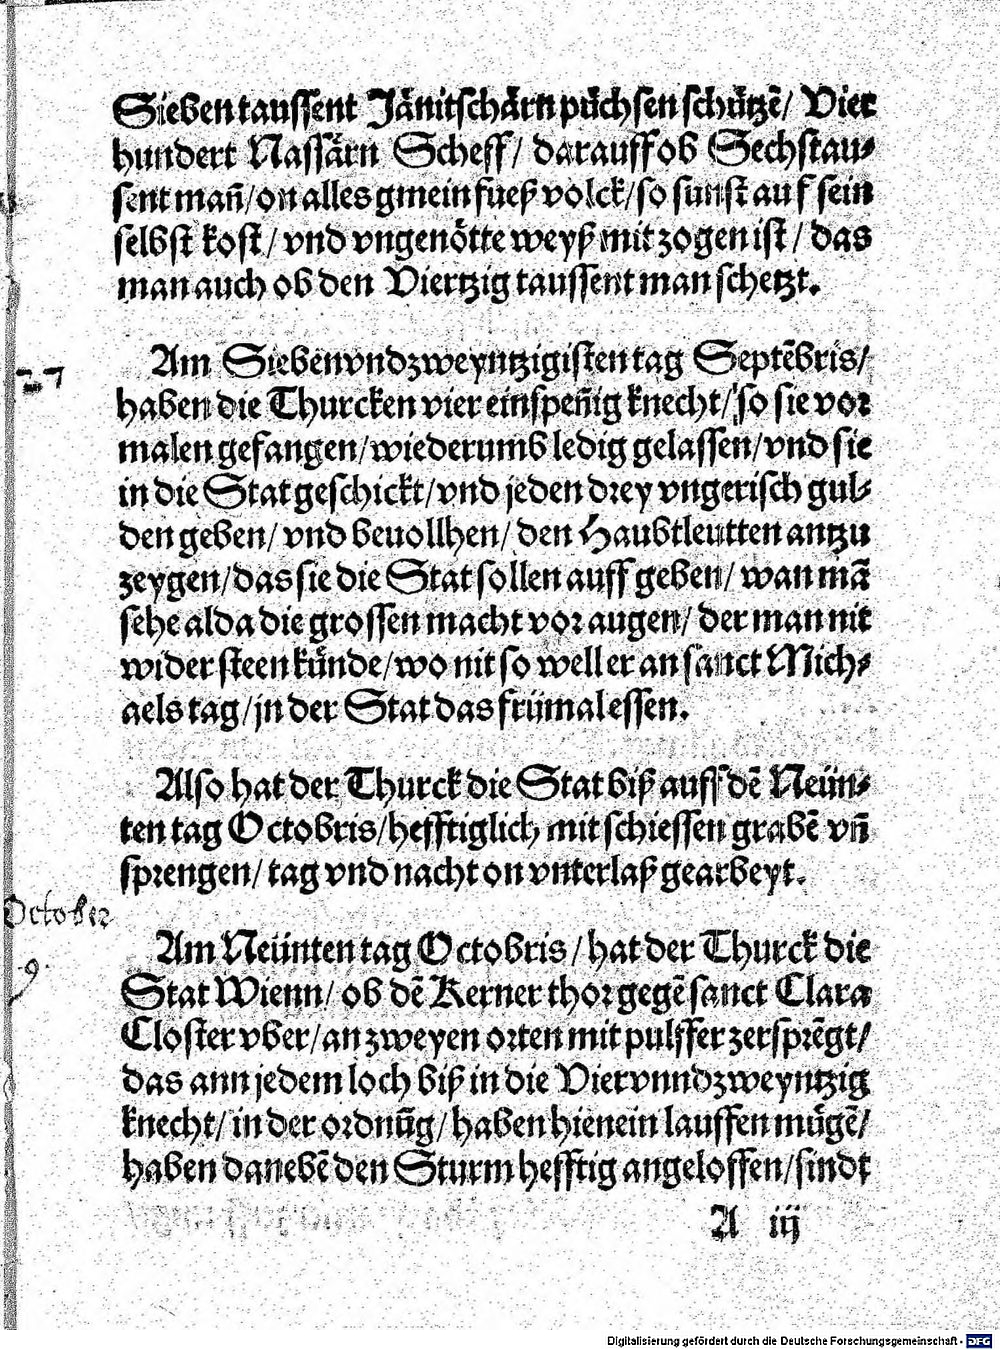 Sieben taussent Jänitschärn püchsen schützē/ Vier
hundert Nassärn Scheff/ darauff ob Sechstau⸗
sent man̄/on alles gmein fueß volck/so sunst auf sein
selbst kost/ vnd vngenötte weyß mit zogen ist/ das
man auch ob den Viertzig taussent man schetzt.
Am Siebenvndzweyntzigisten tag Septēbris/
27
haben die Thurcken vier einspen̄ig knecht/ so sie vor
malen gefangen/wiederumb ledig gelassen/vnd sie
in die Stat geschickt/vnd jeden drey vngerisch gul⸗
den geben/ vnd beuollhen/ den Haubtleutten antzu
zeygen/das sie die Stat sollen auff geben/ wan mā
sehe alda die grossen macht vor augen/ der man nit
wider steen künde/wo nit so well er an sanct Mich⸗
aels tag/jn der Stat das frümal essen.
Also hat der Thurck die Stat biß auff dē Neün⸗
ten tag Octobris/hefftiglich mit schiessen grabē vn̄
sprengen/ tag vnd nacht on vnterlaß gearbeyt.
October
Am Neünten tag Octobris/hat der Thurck die
9.
Stat Wienn/ ob dē Kerner thor gegē sanct Clara
Closter vber/an zweyen orten mit pulffer zersprēgt/
das ann jedem loch biß in die Viervnndzweyntzig
knecht/ in der ordnūg/haben hienein lauffen mügē/
haben danebē den Sturm hefftig angeloffen/sindt
A iij
Digitalisierung gefördert durch die Deutsche Forschungsgemeinschaft - DFG